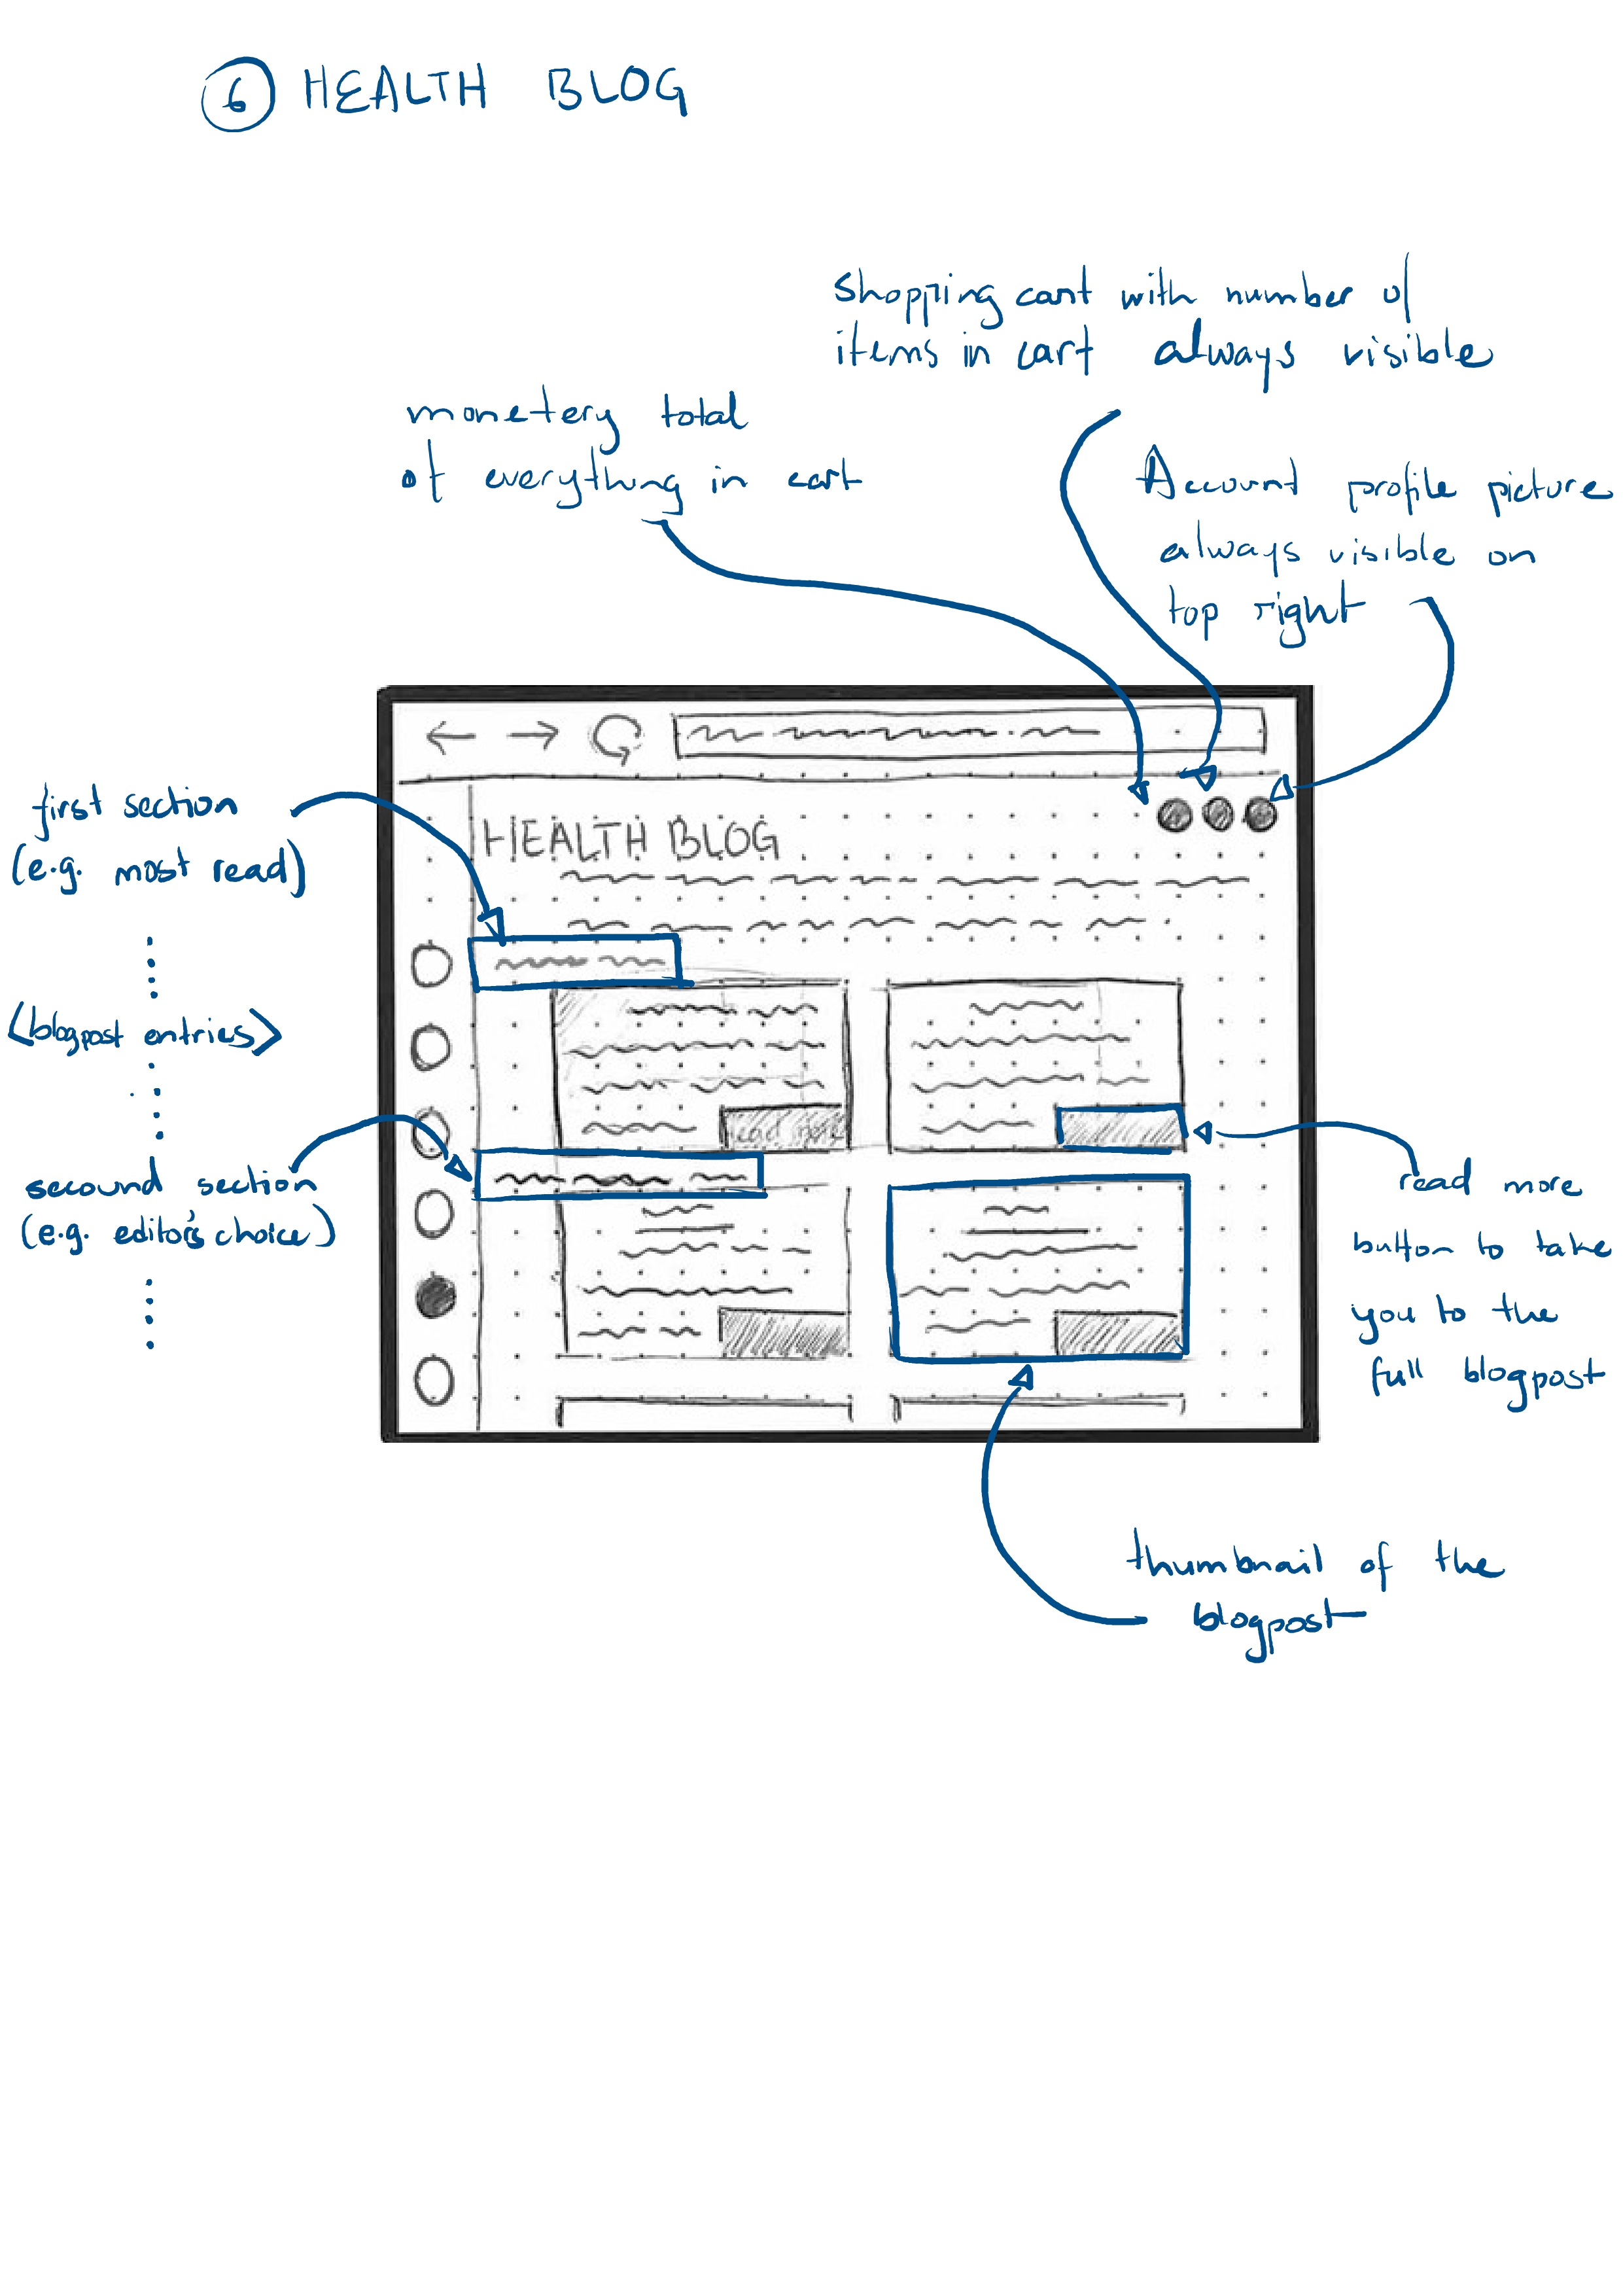 6 HEALTH BLOG
shopping cart with number of
items in cart always visible
monetery total
of everything in cart
Account profile picture
always visible on
top right
first section
(e.g. most read)
<blogpost entries>
secound section
(e.g. editor's choice)
HEALTH BLOG
read more
read more
button to take
you to the
full blogpost
thumbnail of the
blogpost